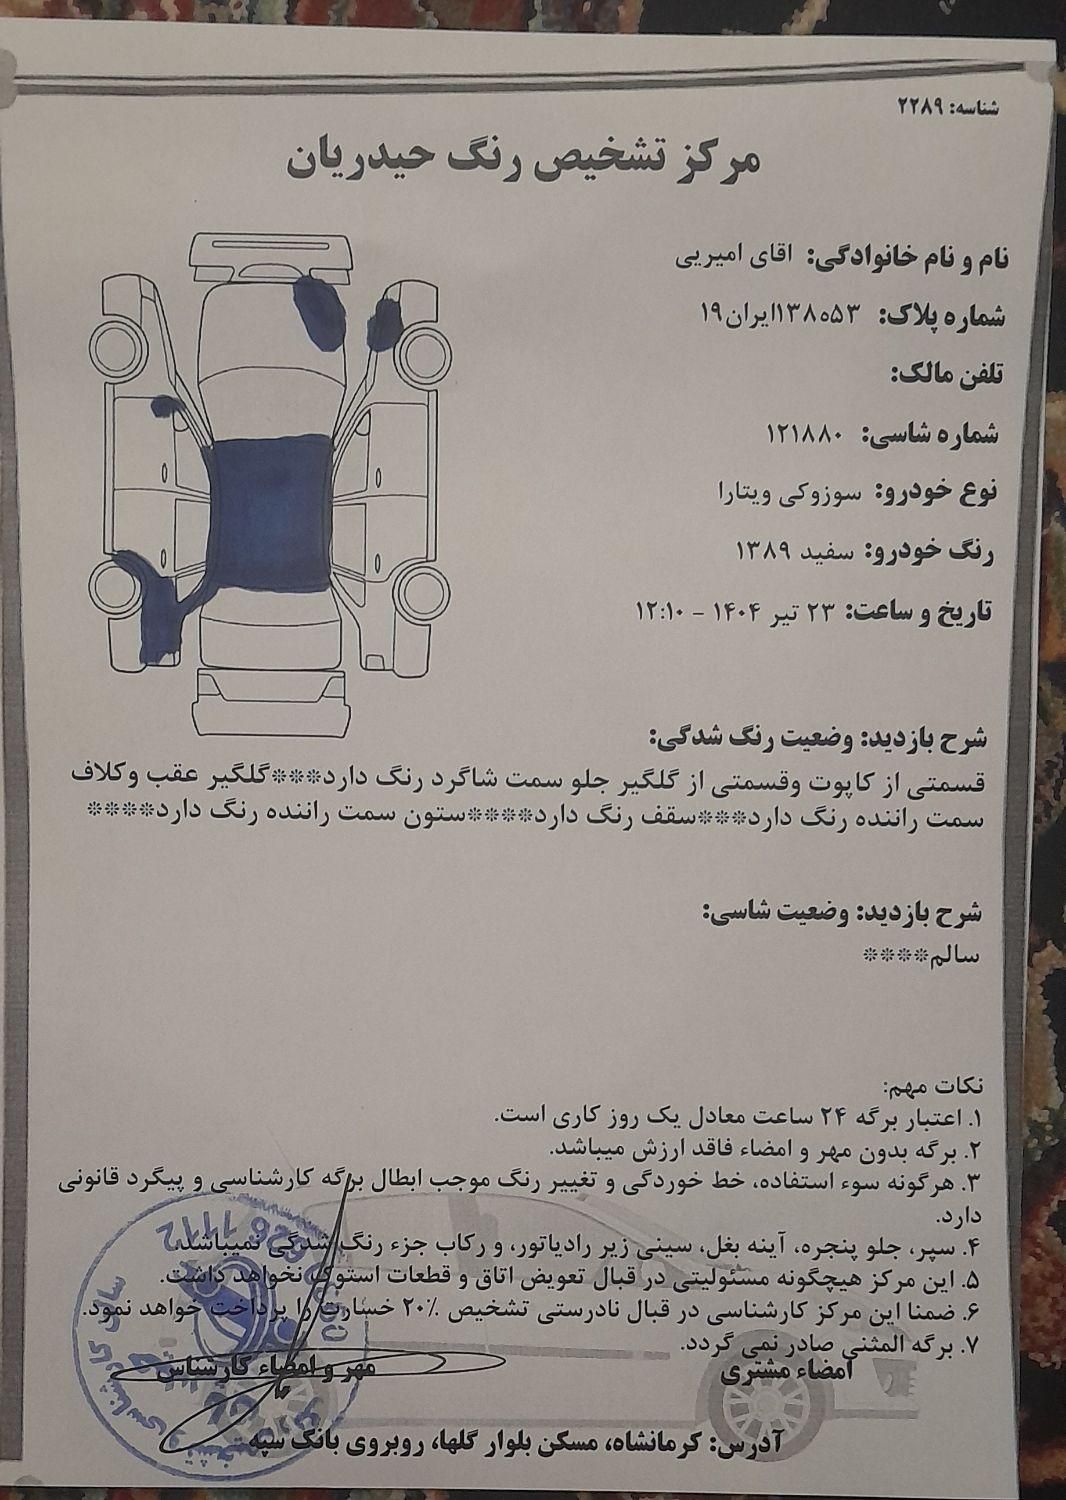 شناسه: ۲۲۸۹
مرکز تشخیص رنگ حیدریان
نام و نام خانوادگی: اقای امیریی
شماره پلاک: ۵۳ه۱۳۸ایران۱۹
تلفن مالک:
شماره شاسی: ۱۲۱۸۸۰
نوع خودرو: سوزوکی ویتارا
رنگ خودرو: سفید ۱۳۸۹
تاریخ و ساعت: ۲۳ تیر ۱۴۰۴ - ۱۲:۱۰
شرح بازدید: وضعیت رنگ شدگی:
قسمتی از کاپوت وقسمتی از گلگیر جلو سمت شاگرد رنگ دارد***گلگیر عقب وکلاف
سمت راننده رنگ دارد***سقف رنگ دارد****ستون سمت راننده رنگ دارد****
شرح بازدید: وضعیت شاسی:
سالم****
نکات مهم:
۱. اعتبار برگه ۲۴ ساعت معادل یک روز کاری است.
۲. برگه بدون مهر و امضاء فاقد ارزش میباشد.
۳. هرگونه سوء استفاده، خط خوردگی و تغییر رنگ موجب ابطال برگه کارشناسی و پیگرد قانونی
دارد.
۴. سپر، جلو پنجره، آینه بغل، سینی زیر رادیاتور، و رکاب جزء رنگ شدگی نمیباشد.
۵. این مرکز هیچگونه مسئولیتی در قبال تعویض اتاق و قطعات استوک نخواهد داشت.
۶. ضمنا این مرکز کارشناسی در قبال نادرستی تشخیص ۲۰٪ خسارت را پرداخت خواهد نمود.
۷. برگه المثنی صادر نمی گردد.
امضاء مشتری
مهر و امضاء کارشناس
آدرس: کرمانشاه، مسکن بلوار گلها، روبروی بانک سپه